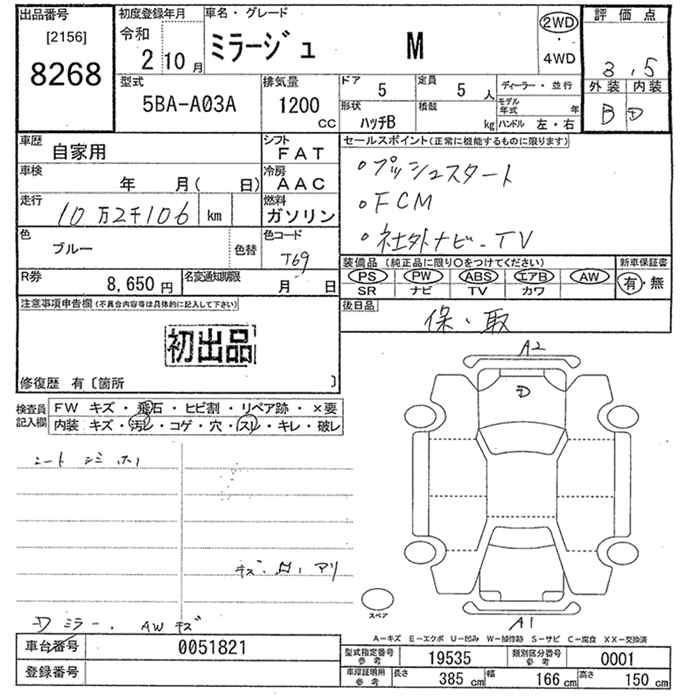 出品番号
[2156]
8268
初度登録年月
令和
2年10月
車名・グレード
ミラージュ M
2WD
・
4WD
評価点
3.5
外装 内装
B D
型式
5BA-A03A
排気量
1200 CC
ドア
5
定員
5人
形状
ハッチB
積載
kg
ディーラー・並行
モデル年式 年
ハンドル 左・右
車歴
自家用
シフト
FAT
車検
年 月( 日)
冷房
AAC
走行
10万2千106 km
燃料
ガソリン
色
ブルー
色替
色コード
T69
R券
8,650円
名変通知期限
月 日
セールスポイント(正常に機能するものに限ります)
・プッシュスタート
・FCM
・社外ナビ・TV
装備品(純正品に限り〇をつけてください)
PS PW ABS エアB AW
SR ナビ TV カワ
新車保証書
有・無
後日品
保・取
注意事項申告欄(不具合内容等は具体的に記入して下さい)
初出品
修復歴 有〔箇所 〕
検査員
記入欄
FW キズ・飛石・ヒビ割・リペア跡・×要
内装 キズ・汚レ・コゲ・穴・スレ・キレ・破レ
シート シミ
キズ・凹・アリ
ミラー、AWキズ
A2
A1
スペア
A-キズ E-エクボ U-凹み W-補修跡 S-サビ C-腐食 XX-交換済
車台番号
0051821
登録番号
型式指定番号
参考
19535
類別区分番号
参考
0001
車庫証明用
参考
長さ 385 cm
幅 166 cm
高さ 150 cm